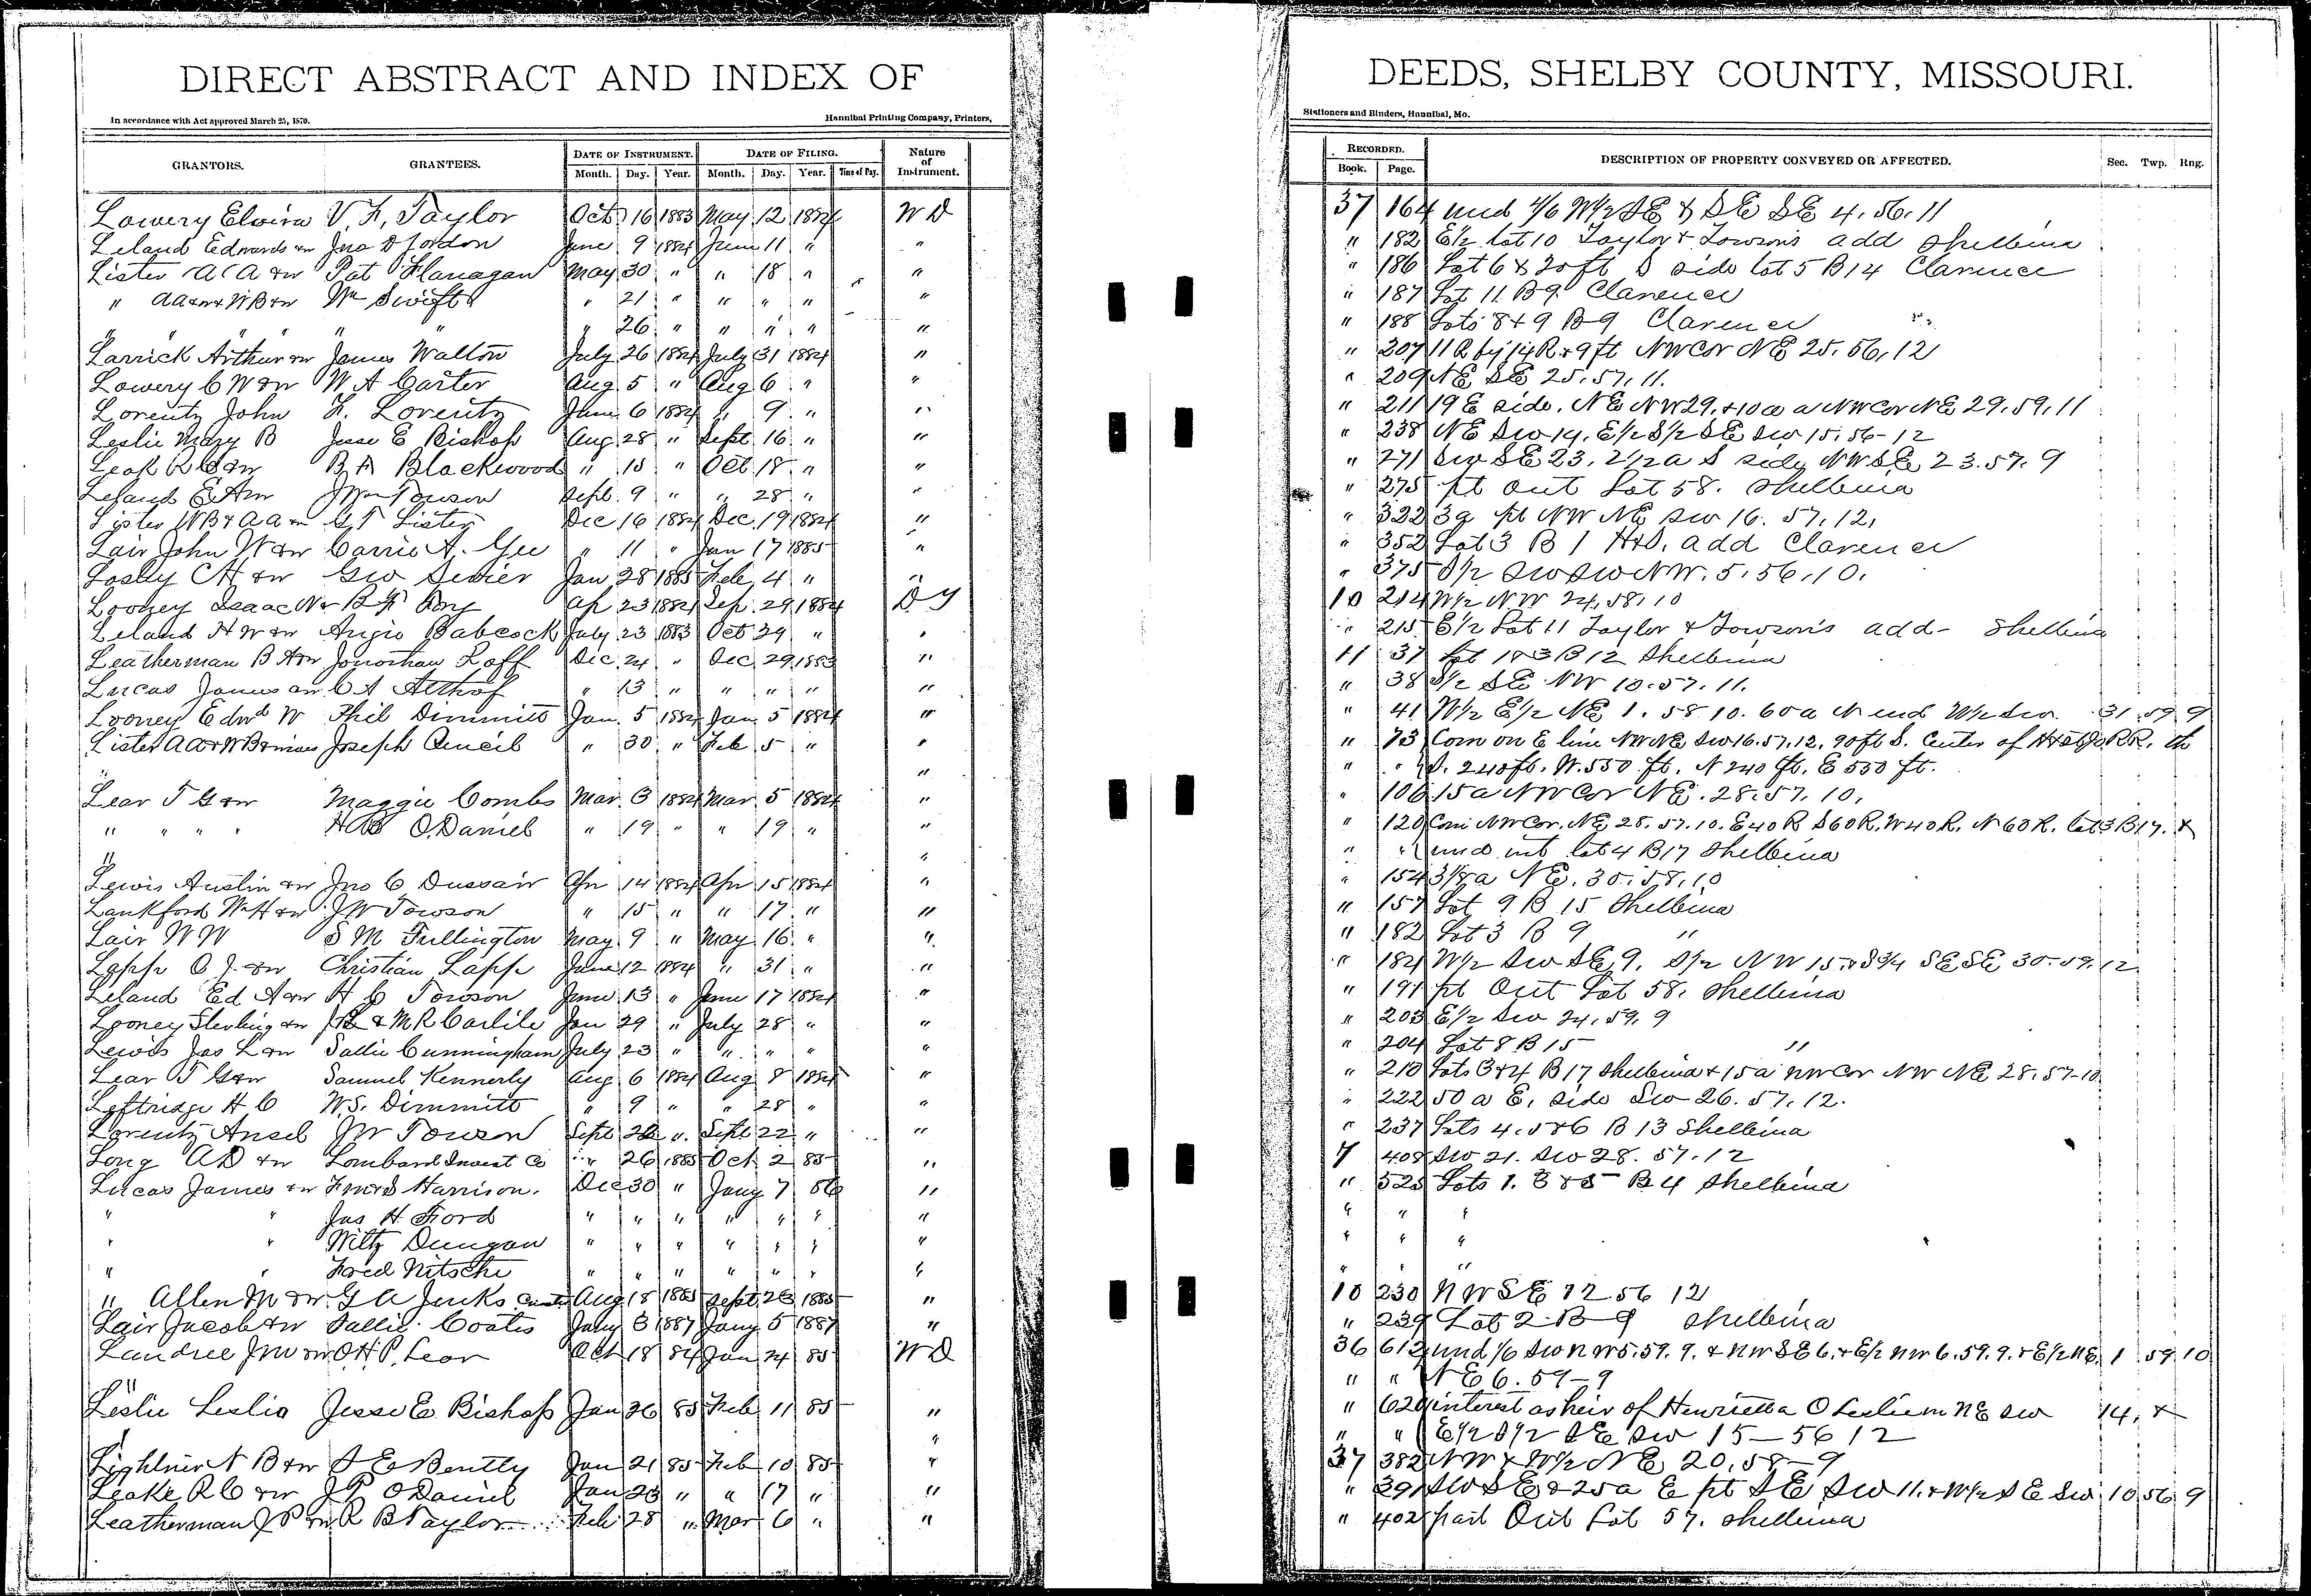 DIRECT ABSTRACT AND INDEX OF DEEDS, SHELBY COUNTY, MISSOURI.
In accordance with Act approved March 25, 1870. Hannibal Printing Company, Printers, Stationers and Binders, Hannibal, Mo.
GRANTORS. GRANTEES. DATE OF INSTRUMENT. DATE OF FILING. Nature of Instrument. RECORDED. DESCRIPTION OF PROPERTY CONVEYED OR AFFECTED. Sec. Twp. Rng.
Month. Day. Year. Month. Day. Year. Time of Day. Book. Page.
Lowery Elvira V. F. Taylor Oct 16 1883 May 12 1884 WD 37 164 und 4/6 W1/2 SE & SE SE 4. 56. 11
Leland Edwards &w Jno D Jordon June 9 1884 June 11 " " " 182 E1/2 lot 10 Taylor & Towson's add Shelbina
Lister A A &w Pat Flanagan May 30 " " 18 " " " 186 Lot 6 & 20ft S side lot 5 B14 Clarence
" AA&w & WB&w Wm Swift " 21 " " " " " " 187 Lot 11 B9 Clarence
" " " " " " " 26 " " " " " " 188 Lots 8 & 9 B9 Clarence
Larrick Arthur &w James Walton July 26 1884 July 31 1884 " " 207 11 R by 14 R & 9 ft NW Cor NE 25. 56. 12
Lowery C W &w W A Carter Aug 5 " Aug 6 " " " 209 NE SE 25. 57. 11.
Lorentz John F. Lorentz June 6 1884 " 9 " " " 211 19 E side. NE NW 29. & 10 a NW Cor NE 29. 59. 11
Leslie Mary B Jesse E Bishop Aug 28 " Sept. 16 " " " 238 NE SW 14. E1/2 S1/2 SE SW 15. 56-12
Leak R C &w B A Blackwood " 15 " Oct 18 " " " 271 SW SE 23. 2 1/2 a S side NW SE 23. 57. 9
Leland E A &w J Wm Towson Sept. 9 " " 28 " " " 275 pt Out Lot 58. Shelbina
Lister WB & AA &w G T Lister Dec 16 1884 Dec. 19 1884 " " 322 3a pt NW NE SW 16. 57. 12.
Lair John W &w Carrie A. Gee " 11 " Jan 17 1885 " " 352 Lot 3 B 1 H&S. add Clarence
Losey C H &w Geo Sevier Jan 28 1885 Feb 4 " " " 375 S1/2 SW SW NW. 5. 56. 10.
Looney Isaac N & B F Ap 23 1884 Sep. 29 1884 10 214 W1/2 NW 24. 58. 10
Leland H W &w Angie Babcock July 23 1883 Oct 29 " " " 215 E1/2 Lot 11 Taylor & Towson's add- Shelbina
Leatherman B A &w Jonathan Roff Dec. 24 " Dec. 29 1883 " 11 37 Lot 1 & 3 B 12 Shelbina
Lucas James &w C A Althof " 13 " " " " " " 38 S1/2 SE NW 10. 57. 11.
Looney Edwd W Phil Dimmitt Jan. 5 1884 Jan. 5 1884 " " 41 W1/2 E1/2 NE 1. 58. 10. 60 a N end W1/2 SW 31 59 9
Lister AA & WB & wives Joseph " 30 " Feb 5 " " " 73 Com on E line NW NE SW 16. 57. 12, 90ft S. center of H&StJo RR. th
" " " " S. 240ft. W. 550 ft. N 240 ft. E 550 ft.
Lear T G &w Maggie Combs Mar. 3 1884 Mar. 5 1884 " " 106 15 a NW Cor NE. 28. 57. 10.
" " " " H B O.Daniel " 19 " " 19 " " " 120 Com NW Cor. NE 28. 57. 10. E 40 R S 60 R. W 40 R. N 60 R. lot 3 B17. &
" " " " und int lot 4 B17 Shelbina
Lewis Austin &w Jno C Dussair Apr 14 1884 Apr 15 1884 " " 154 3 1/8 a NE. 30. 58. 10
Lankford W H &w J W Towson " 15 " " 17 " " " 157 Lot 9 B 15 Shelbina
Lair W W S M Fullington May 9 " May 16 " " " 182 Lot 3 B 9 "
Lapp C J. &w Christian Lapp June 12 1884 " 31 " " " 184 W1/2 SW SE 9. S1/2 NW 15. & S3/4 SE SE 30-59. 12
Leland Ed A &w H C Towson June 13 " June 17 1884 " " 191 pt Out Lot 58. Shelbina
Looney Sterling &w J B & M R Carlile Jan 29 " July 28 " " " 203 E1/2 SW 24. 59. 9
Lewis Jas L &w Sallie Cunningham July 23 " " " " " " 204 Lot 8 B 15 "
Lear T G &w Samuel Kennerly Aug 6 1884 Aug 8 1884 " " 210 Lots 3 & 4 B 17 Shelbina & 15 a NW Cor NW NE 28. 57-10
Leftridge H C W.S. Dimmitt " 9 " " 28 " " " 222 50 a E. side SW 26. 57. 12.
Lorentz Ansel J W Towson Sept " Sept 22 " " " 237 Lots 4. 5 & 6 B 13 Shelbina
Long A D &w Lombard Invest Co " 26 1885 Oct 2 85 " 7 408 SW 21. SW 28. 57. 12
Lucas James &w Harrison. Dec 30 " Jany 7 86 " " 525 Lots 1. 3 & 5 B 4 Shelbina
" " Jas H. Ford " " " " " " " " " "
" " Wiltz Dungan " " " " " " " " " "
" " Fred Nitsche " " " " " " " " " "
" Allen M &w G A Jenks Aug 18 1885 Sept 23 1885 " 10 230 NW SE 12 56 12
Lair Jacob &w Sallie Coates Jany 3 1887 Jany 5 1887 " " 239 Lot 2. B 9 Shelbina
Landree J W &w O. H. P. Lear Oct 18 84 Jan 24 85 WD 36 612 und 1/6 SW NW 5. 59. 9. & NW SE 6. & E1/2 NW 6. 59. 9. & E1/2 NE. 1 59 10
" " " " NE 6. 59-9
Leslie Leslie Jesse E Bishop Jan 26 85 Feb 11 85 " " 620 interest as heir of Henrietta O Leslie in NE SW 14, &
" " " E1/2 S1/2 SE SW 15-56 12
Lightner N B &w S E Bently Jan 21 85 Feb 10 85 " 37 382 NW & W1/2 NE 20. 58-9
Leake R C &w J P O Daniel Jan 23 " " 17 " " " 391 SW SE & 25a E pt SE SW 11. & W1/2 SE SW 10 56 9
Leatherman J P &w R B Taylor Feb 28 " Mar 6 " " " 402 part Out Lot 57. Shelbina